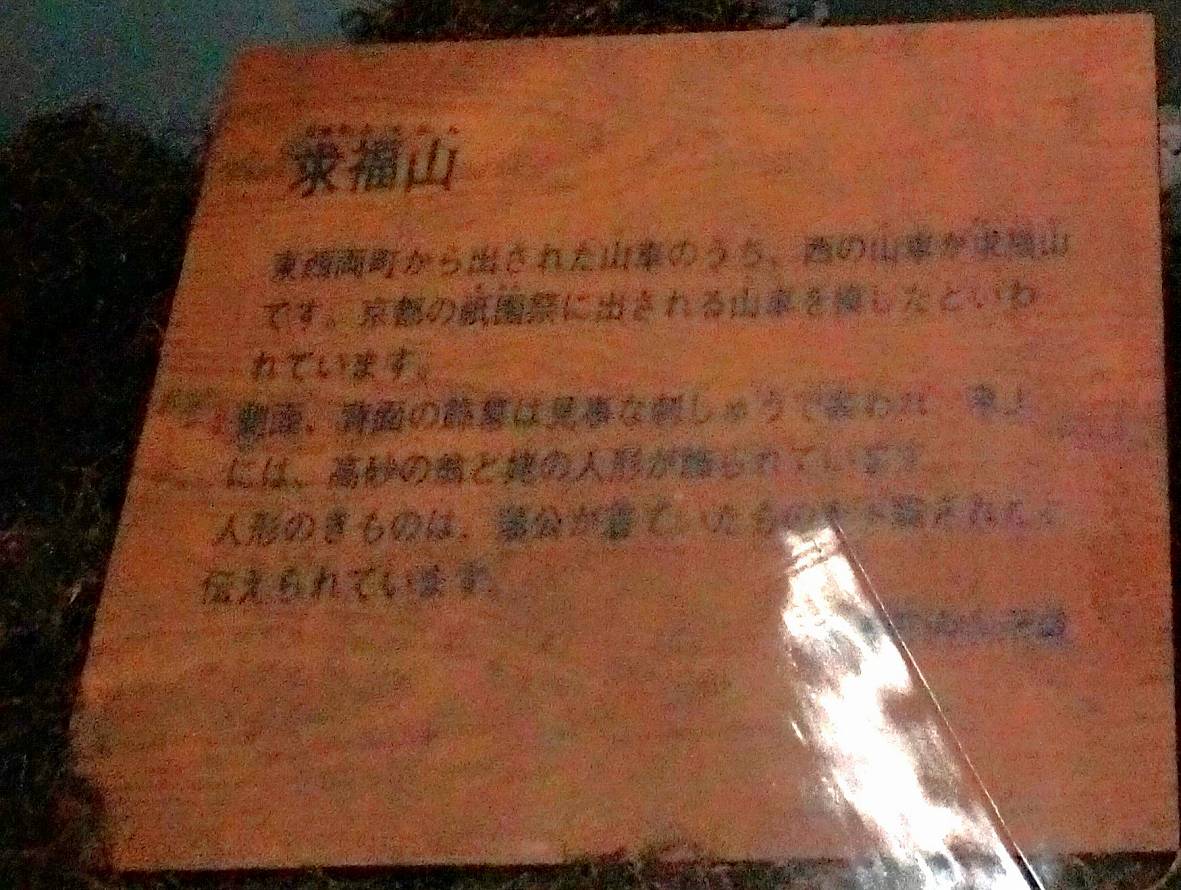 求福山
東西両町から出された山車のうち、西の山車が求福山
です。京都の祇園祭に出される山車を模したといわ
れています。
側面、背面の飾幕は見事な刺しゅうで 車上
には、高砂の翁と姥の人形が飾られています
人形のきものは、藩公が着ていたものを下賜されたと
伝えられています。